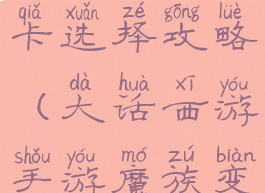 qiǎ xuǎn zé gōng lüè
卡选择攻略
dà huà xī yóu
（大话西游
shǒu yóu mó zú biàn
手游魔族变